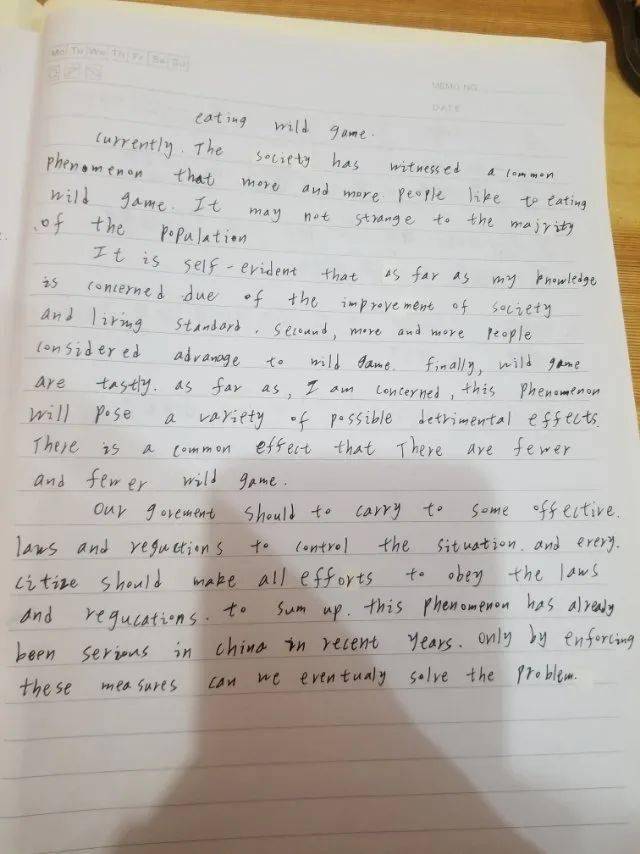 Mo Tu We Th Fr Sa Su
MEMO NO.
DATE
eating wild game.
currently. The society has witnessed a common
phenomenon that more and more people like to eating
wild game. It may not strange to the majrity
of the population
It is self-evident that as far as my knowledge
is concerned due of the improvement of society
and living standard. secound, more and more people
considered advanage to wild game. finally, wild game
are tastly. as far as, I am concerned, this phenomenon
will pose a variety of possible detrimental effects.
There is a common effect that There are fewer
and fewer wild game.
our goverment should to carry to some offective.
laws and reguctions to control the situation. and every.
citize should make all efforts to obey the laws
and regucations. to sum up. this phenomenon has already
been serious in china in recent years. only by enforcing
these measures can we eventualy solve the problem.